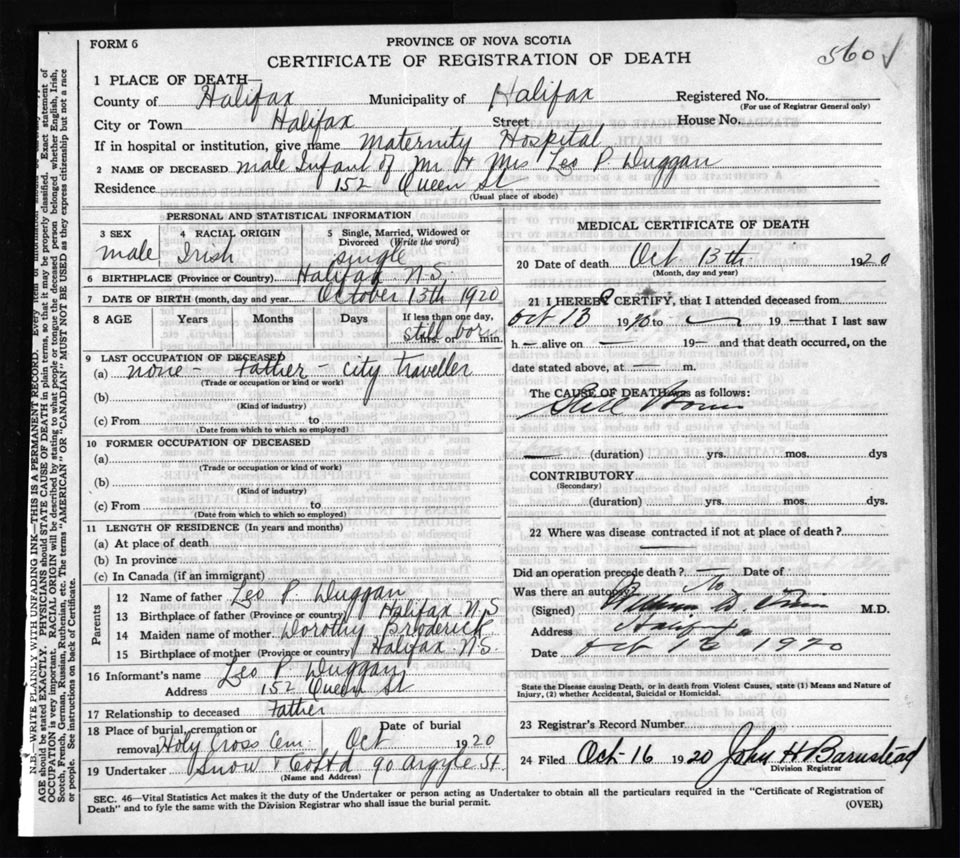 FORM 6
PROVINCE OF NOVA SCOTIA
CERTIFICATE OF REGISTRATION OF DEATH
560 √
1 PLACE OF DEATH—
County of Halifax Municipality of Halifax Registered No.
(For use of Registrar General only)
City or Town Halifax Street House No.
If in hospital or institution, give name Maternity Hospital
2 NAME OF DECEASED male Infant of Mr & Mrs Leo P. Duggan
Residence 152 Queen St
(Usual place of abode)
PERSONAL AND STATISTICAL INFORMATION
3 SEX 4 RACIAL ORIGIN 5 Single, Married, Widowed or Divorced (Write the word)
male Irish single
6 BIRTHPLACE (Province or Country) Halifax N.S.
7 DATE OF BIRTH (month, day and year) October 13th 1920
8 AGE Years Months Days If less than one day,
still born
hrs. or min.
9 LAST OCCUPATION OF DECEASED
(a) none - Father - city traveller
(Trade or occupation or kind or work)
(b)
(Kind of industry)
(c) From to
(Date from which to which so employed)
10 FORMER OCCUPATION OF DECEASED
(a)
(Trade or occupation or kind of work)
(b)
(Kind of industry)
(c) From to
(Date from which to which so employed)
11 LENGTH OF RESIDENCE (In years and months)
(a) At place of death
(b) In province
(c) In Canada (if an immigrant)
Parents
12 Name of father Leo P. Duggan
13 Birthplace of father (Province or country) Halifax N.S
14 Maiden name of mother Dorothy Broderick
15 Birthplace of mother (Province or country) Halifax N.S.
16 Informant's name Leo P Duggan
Address 152 Queen St
17 Relationship to deceased Father
18 Place of burial, cremation or removal Holy Cross Cem. Date of burial Oct 1920
19 Undertaker Snow & Co Ltd 90 Argyle St.
(Name and Address)
MEDICAL CERTIFICATE OF DEATH
20 Date of death Oct 13th 1920
(Month, day and year)
21 I HEREBY CERTIFY, that I attended deceased from
Oct 13 1920 to — 19 — that I last saw
h — alive on — 19 — and that death occurred, on the
date stated above, at — m.
The CAUSE OF DEATH was as follows:
Still Born
(duration) yrs. mos. dys
CONTRIBUTORY
(Secondary)
(duration) yrs. mos. dys.
22 Where was disease contracted if not at place of death?
Did an operation precede death? — Date of
Was there an autopsy? No
(Signed) M.D.
Address Halifax
Date Oct 16 1920
State the Disease causing Death, or in death from Violent Causes, state (1) Means and Nature of Injury, (2) whether Accidental, Suicidal or Homicidal.
23 Registrar's Record Number
24 Filed Oct 16 1920 John H Barnstead
Division Registrar
SEC. 46—Vital Statistics Act makes it the duty of the Undertaker or person acting as Undertaker to obtain all the particulars required in the "Certificate of Registration of
Death" and to fyle the same with the Division Registrar who shall issue the burial permit.
(OVER)
N.B.—WRITE PLAINLY WITH UNFADING INK—THIS IS A PERMANENT RECORD. Every item of information should be
AGE should be stated EXACTLY. PHYSICIANS should STATE CAUSE OF DEATH in plain terms, so that it may be properly classified. Exact statement of
OCCUPATION is very important. RACIAL ORIGIN will be described by stating to what people or tongue the deceased person belonged whether English, Irish,
Scotch, French, German, Russian, Ruthenian, etc. The terms "AMERICAN" OR "CANADIAN" MUST NOT BE USED as they express citizenship but not a race
or people. See instructions on back of Certificate.